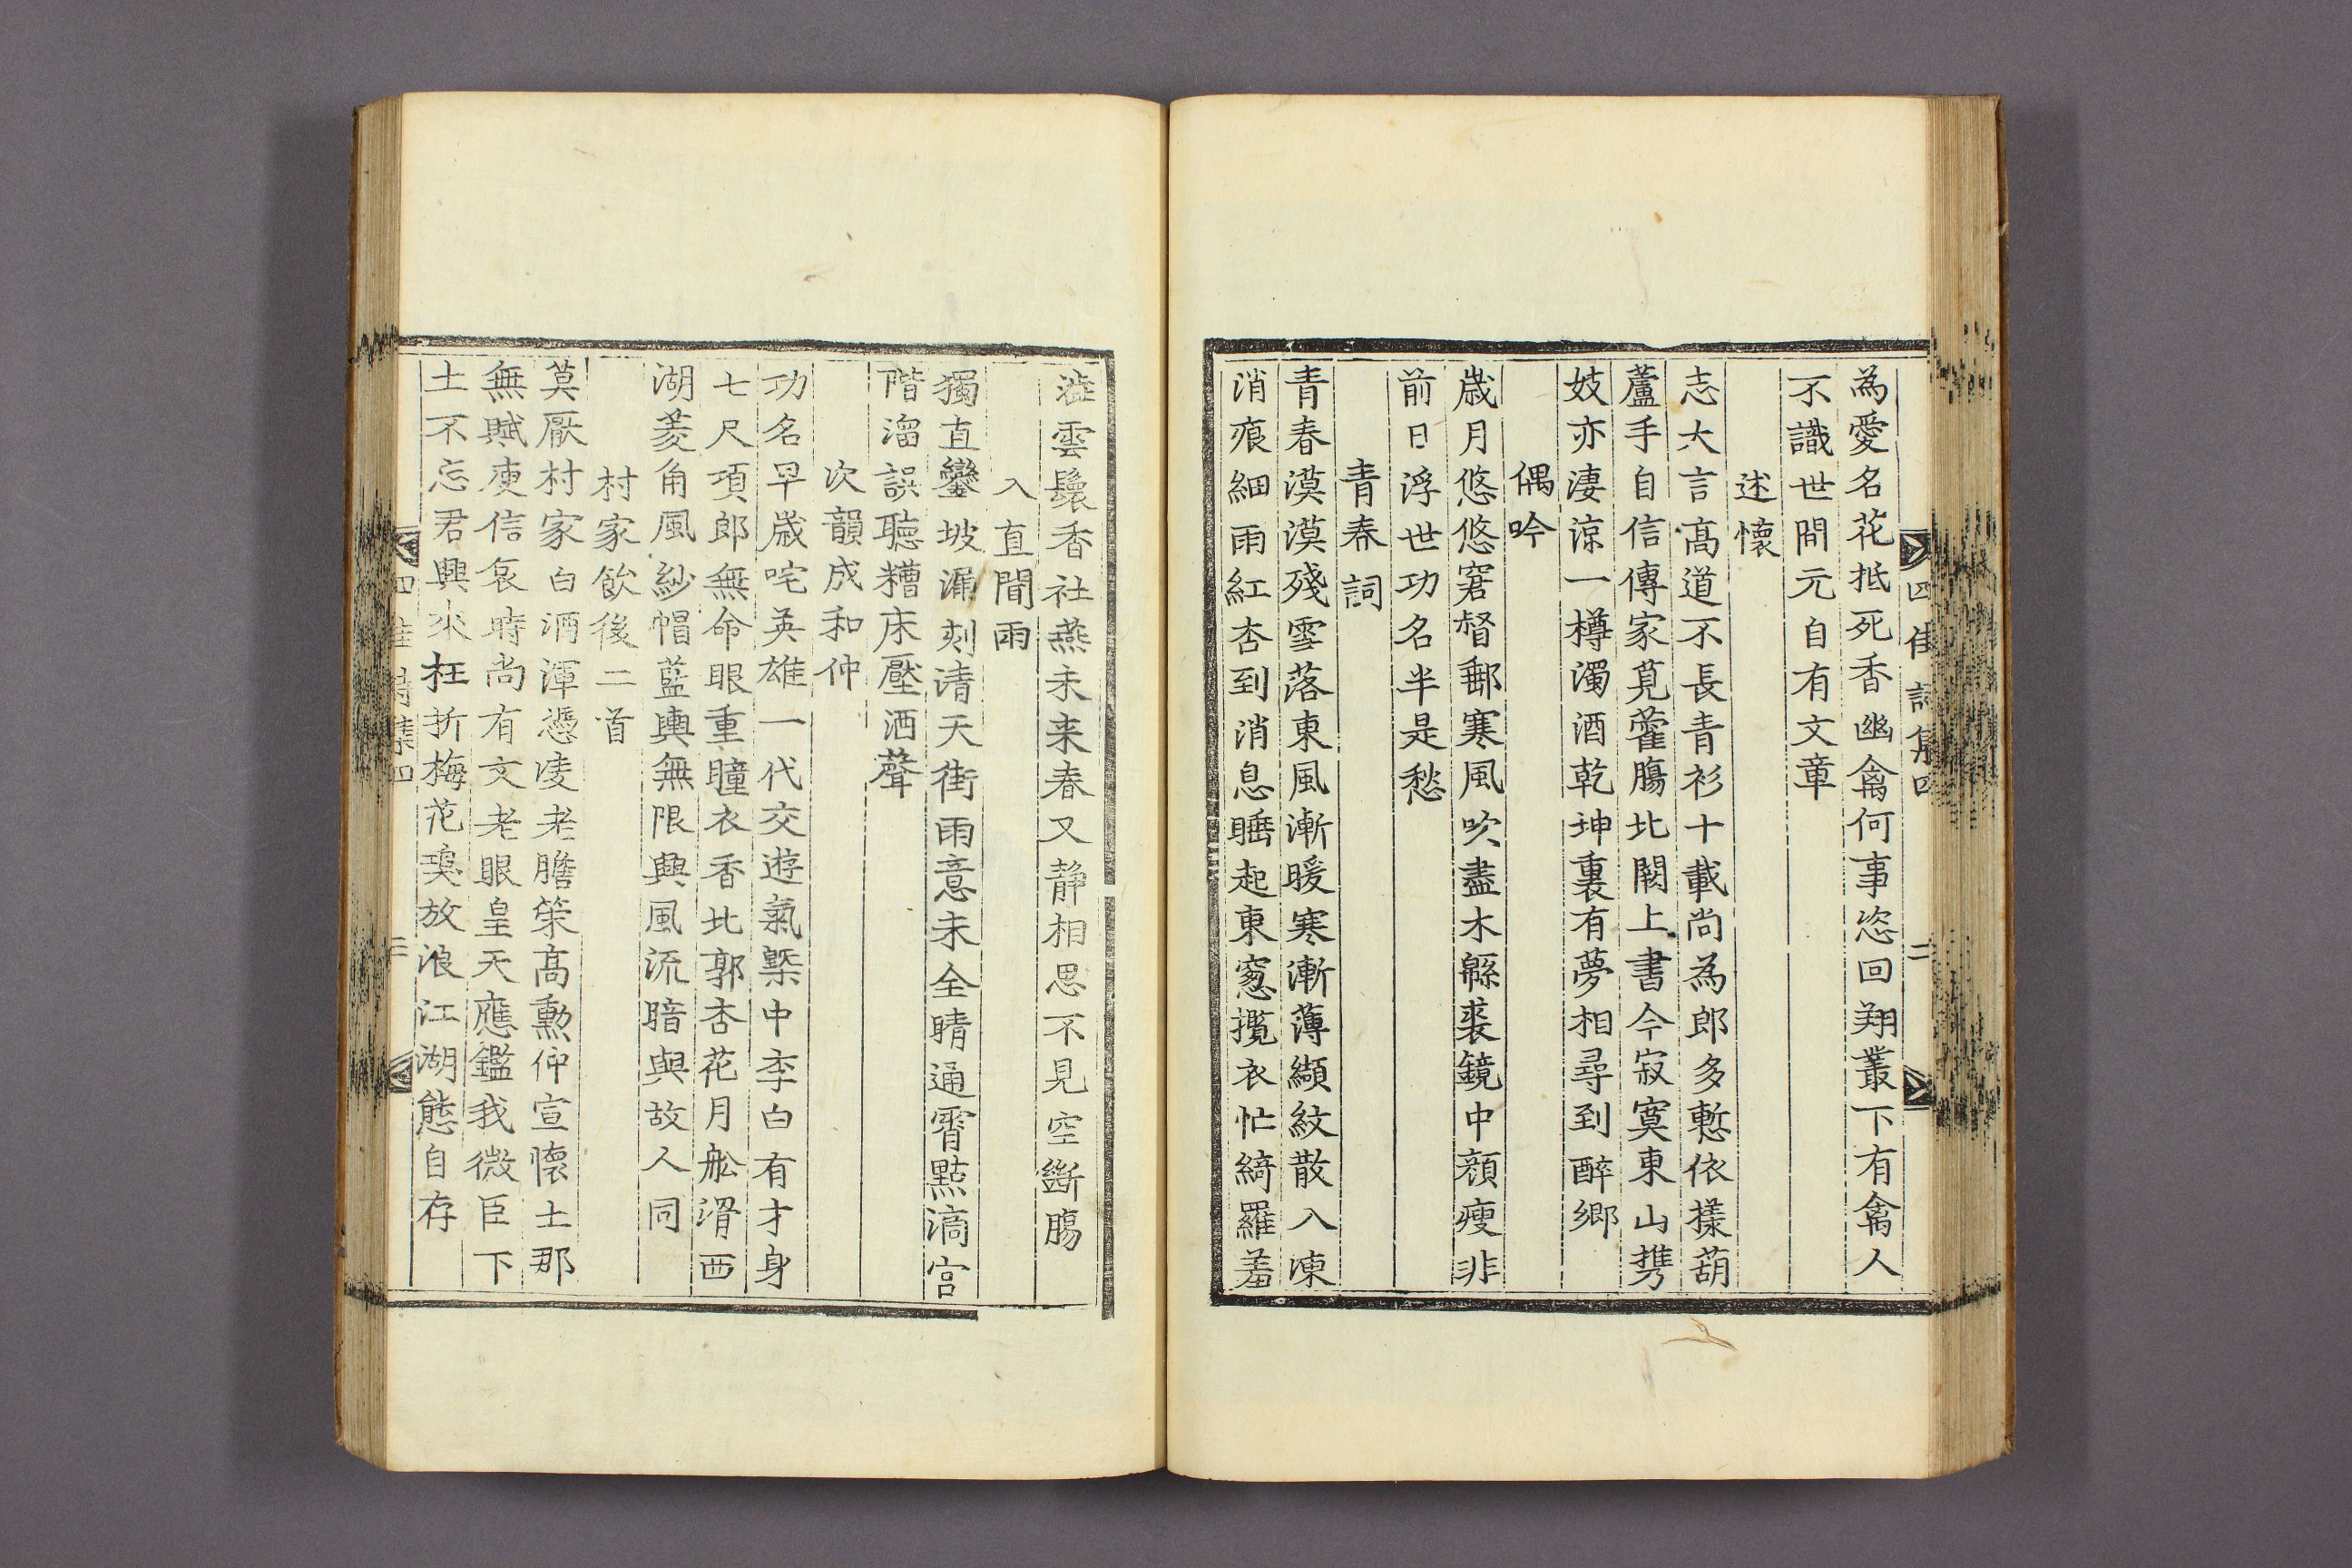 為愛名花抵死香幽禽何事恣回翔叢下有禽人
不識世間元自有文章
述懷
志大言高道不長青衫十載尚為郎多慙依㨾葫
蘆手自信傳家莧藿腸北闕上書今寂寞東山携
妓亦淒涼一樽濁酒乾坤裏有夢相尋到醉鄉
偶吟
歲月悠悠窘督郵寒風吹盡木緜裘鏡中顔瘦非
前日浮世功名半是愁
青春詞
青春漠漠殘雪落東風漸暖寒漸薄纈紋散入凍
消痕細雨紅杏到消息睡起東窓攬衣忙綺羅羞
澁雲鬟香社燕未来春又静相思不見空斷膓
入直聞雨
獨直鑾坡漏刻清天街雨意未全晴通霄點滴宫
階溜誤聽糟床壓酒聲
次韻成和仲
功名早歲咤英雄一代交遊氣槩中李白有才身
七尺項郎無命眼重瞳衣香北郭杏花月舩滑西
湖菱角風紗帽藍輿無限興風流暗與故人同
村家飲後二首
莫厭村家白酒渾憑凌老膽策高勲仲宣懷土那
無賦庾信哀時尚有文老眼皇天應鑑我微臣下
土不忘君興來枉折梅花嗅放浪江湖態自存